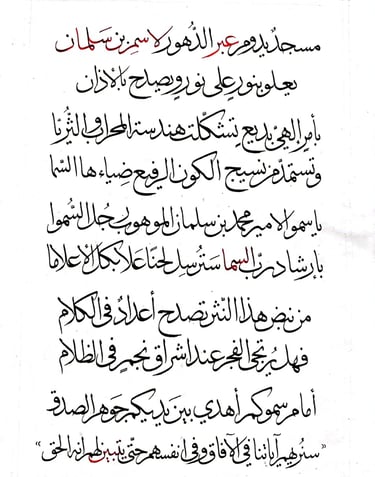 مسجدٌ يدوم عبر الدُّهور لاسم بن سَلمان
يعلو بنورٍ على نورٍ ويصدح بالأذان
بأمرٍ إلهيٍّ بديع تشكّلت هندسة المحراب والثريّا
وتستمدّ من نسيج الكون الرفيع ضياءها السّما
يا سمو الأمير محمد بن سلمان الموهوب رجل السُّموا
بإرشاد ربّ السما سترسل لحنًا علا بكل الأعلاما
من نبض هذا النثر تصدح أعدادٌ في الكلام
فهل يُرتجى الفجر عند اشراق نجمٍ في الظلام
أمام سموكم أهدي بين يديكم جوهر الصدق
«سنريهم آياتنا في الآفاق وفي انفسهم حتّى يتبين لهم انه الحق»